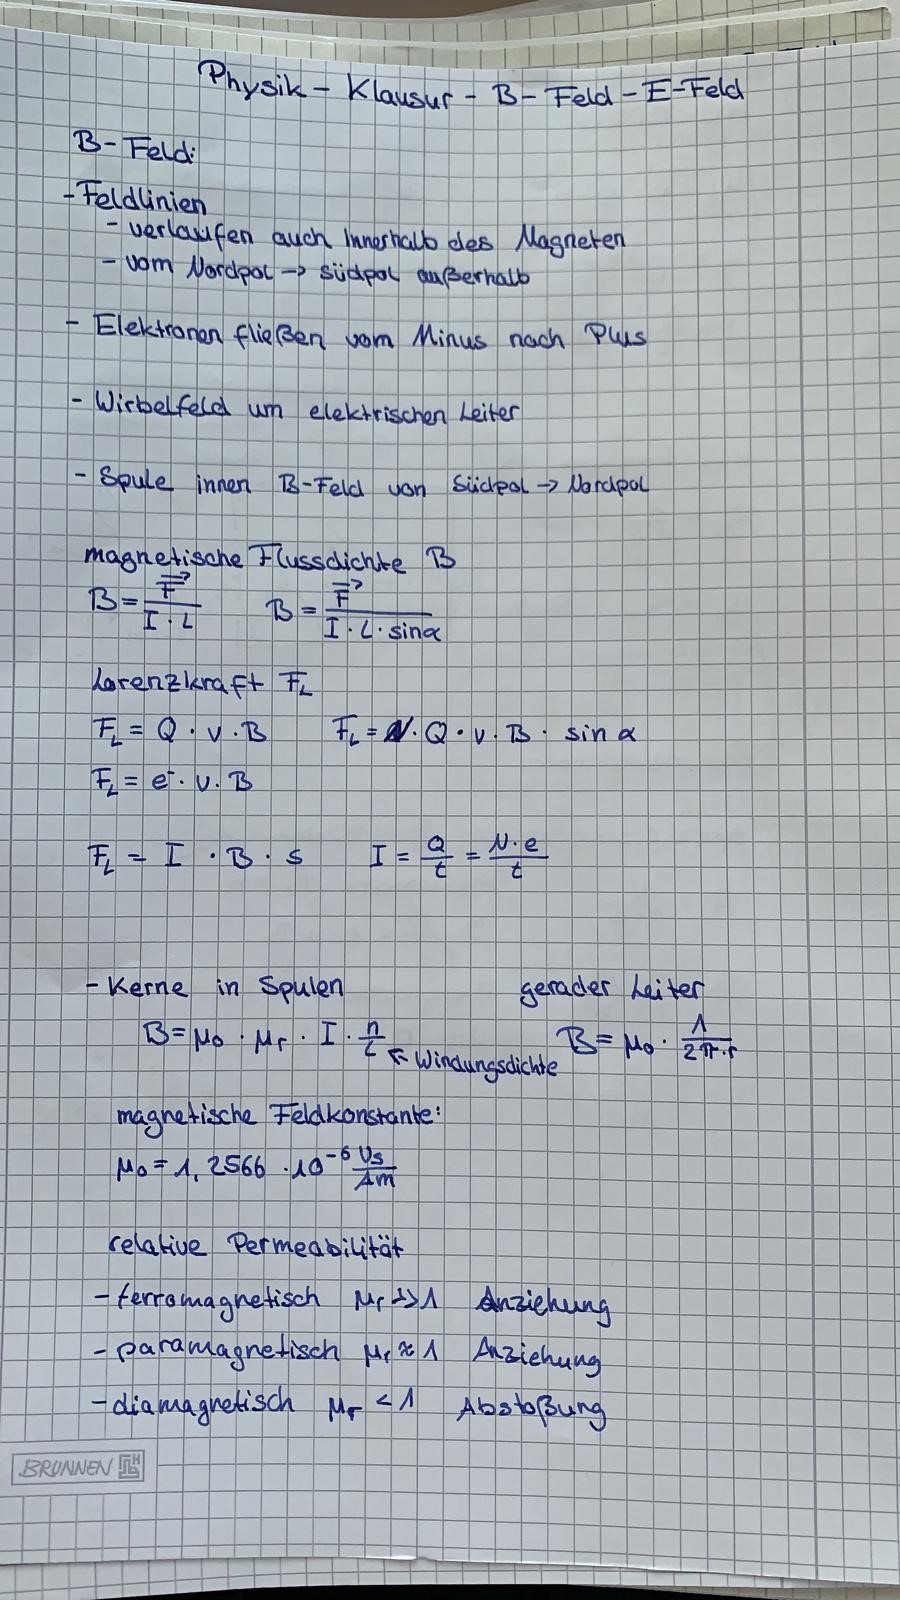 Physik - Klausur - B-Feld - E-Feld
B-Feld:
- Feldlinien
- verlaufen auch Innerhalb des Magneten
- vom Nordpol → südpol außerhalb
- Elektronen fließen vom Minus nach Plus
- Wirbelfeld um elektrischen Leiter
- Spule innen B-Feld von Südpol → Nordpol
magnetische Flussdichte B
B = F⃗ / (I · L)    B = F⃗ / (I · L · sin α)
Lorenzkraft F_L
F_L = Q · v · B    F_L = N · Q · v · B · sin α
F_L = e⁻ · v · B
F_L = I · B · s    I = Q/t = N·e/t
- Kerne in Spulen    gerader Leiter
B = μ₀ · μᵣ · I · n/L ↖ Windungsdichte    B = μ₀ · 1/(2π·r)
magnetische Feldkonstante:
μ₀ = 1,2566 · 10⁻⁶ Vs/Am
relative Permeabilität
- ferromagnetisch μᵣ >> 1 Anziehung
- paramagnetisch μᵣ ≈ 1 Anziehung
- diamagnetisch μᵣ < 1 Abstoßung
BRUNNEN